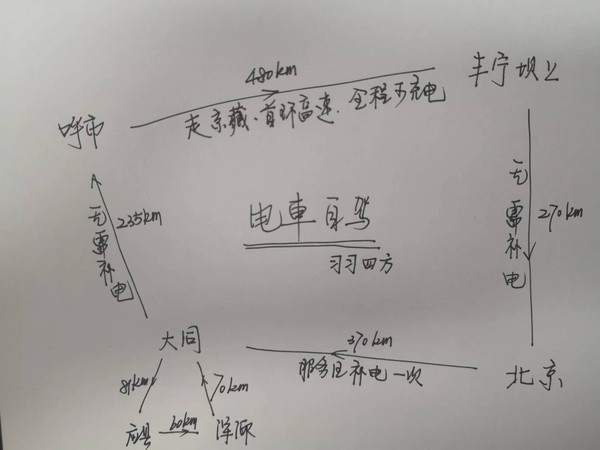 480km
丰宁坝上
走京藏、首环高速、全程可充电
呼市
235km
无需补电
电車自驾
习习四方
无需补电
270km
大同
370km
服务区补电一次
北京
81km
70km
应县
60km
浑源